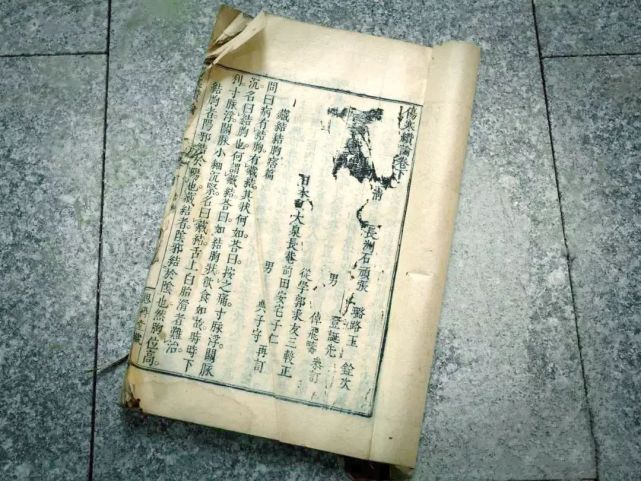 傷寒纘論卷下
清 長洲石頑張 璐路玉 詮次
男 登誕先
倬飛疇 參訂
從學郭來友三較正
日本 大阜長菴前田安宅子仁
男 典子守 再訂
藏結結胸痞篇
問曰病有結胸有藏結其狀何如答曰按之痛寸脉浮關脉
沉名曰結胸也何謂藏結答曰如結胸狀飲食如故時時下
利寸脉浮關脉小細沉緊名曰藏結舌上白胎滑者難治
結胸者陽邪結於陽也藏結者陰邪結於陰也然胸位高